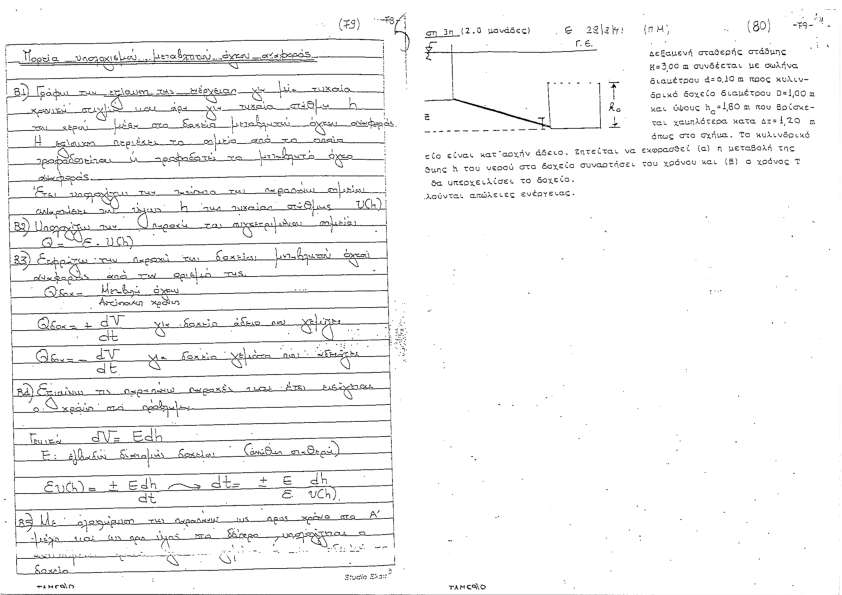 (79)
Πορεία υπολογισμού μεταβλητού όγκου αναφοράς
Β1) Γράφω την εξίσωση της ενέργειας για μία τυχαία
χρονική στιγμή και άρα για τυχαία στάθμη h
του νερού μέσα στο δοχείο μεταβλητού όγκου αναφοράς.
Η εξίσωση περιέχει τα σημεία από τα οποία
τροφοδοτείται ή τροφοδοτεί το μεταβλητό όγκο
αναφοράς.
Έτσι υπολογίζω την ταχύτητα του παραπάνω σημείου
συναρτήσει του ύψους h της τυχαίας στάθμης U(h)
Β2) Υπολογίζω την παροχή του συγκεκριμένου σημείου
Q = ε · U(h)
Β3) Εκφράζω την παροχή του δοχείου μεταβλητού όγκου
αναφοράς από τον ορισμό της.
Qδοχ = Μεταβολή όγκου
Αντίστοιχη χρόνου
Qδοχ = + dV/dt για δοχείο άδειο που γεμίζει
Qδοχ = - dV/dt για δοχείο γεμάτο που αδειάζει
Β4) Εξισώνω τις παραπάνω παροχές και έτσι εισάγεται
ο χρόνος στο πρόβλημα.
Γενικά dV = Edh
E: εμβαδόν διατομής δοχείου (συνήθως σταθερή)
εU(h) = ± Edh/dt → dt = ± E/ε dh/U(h)
Β5) Με ολοκλήρωση της παραπάνω ως προς χρόνο στο Α'
μέλος και ως προς ύψος στο δεύτερο, υπολογίζεται ο
δοχείο
Studio Skart
ΤΑΜΕΘΙΟ
ση 3η (2.0 μονάδες) Θ 28/2/91 (Π.Μ) (80) -79-
Γ.Ε.
Δεξαμενή σταθερής στάθμης
Η=3,00 m συνδέεται με σωλήνα
διαμέτρου d=0,10 m προς κυλιν-
δρικό δοχείο διαμέτρου D=1,00 m
και ύψους h₀=1,80 m που βρίσκε-
ται χαμηλότερα κατά Δz=1,20 m
όπως στο σχήμα. Το κυλινδρικό
είο είναι κατ'αρχήν άδειο. Ζητείται να εκφρασθεί (α) η μεταβολή της
θμης h του νερού στο δοχείο συναρτήσει του χρόνου και (β) ο χρόνος Τ
θα υπερχειλίσει το δοχείο.
λούνται απώλειες ενέργειας.
ΤΑΜΕΘΙΟ